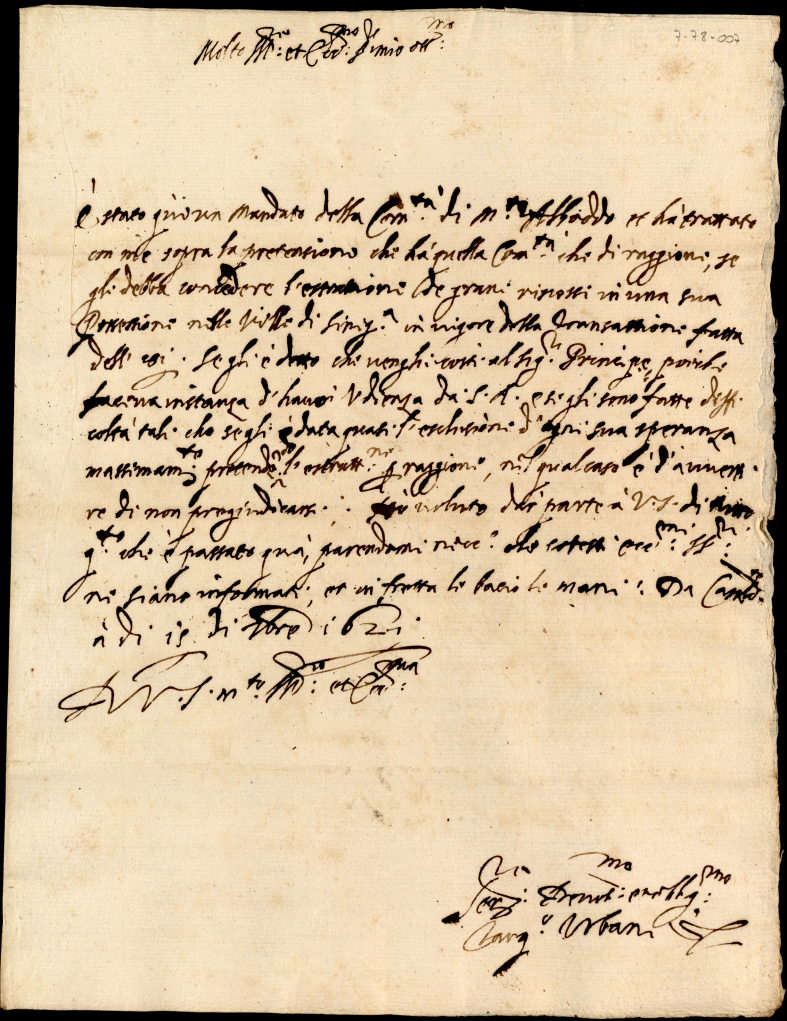 7-78-007
Molto Ill.re et Ecc.mo S.r mio oss.mo
È stato quì un Mandato della Com.tà di M.te Alboddo et hà trattato
con me sopra la pretensione che hà quella Com.tà che di raggione, se
gli debba concedere l'estrattione de grani riposti in una sua
Possessione nelle Ville di Sinig.a in vigore della Transattione fatta
dell' . Se gli è detto che venghi costì al Sig.r Principe, poiche
faceva instanza d'havere Udienza da S. A. e se gli sono fatte diffi-
coltà tali che se gli è data quasi l'esclusione d'ogni sua speranza
massimam.te pretendendo l'estratt.ne raggione, nel qual caso è d'avverti-
re di non pregiudicarsi. Hò voluto dar parte à V.S. di tutto
q.to che è passato quà, parendomi nece.o che cotesti ecc.mi SS.ri
ne siano informati, et in fretta le bacio le mani. Da
à di 15 di 1621
D V.S. m.to Ill.re et Ecc.ma
Ser.re Devot.mo et obblig.mo
Urbani